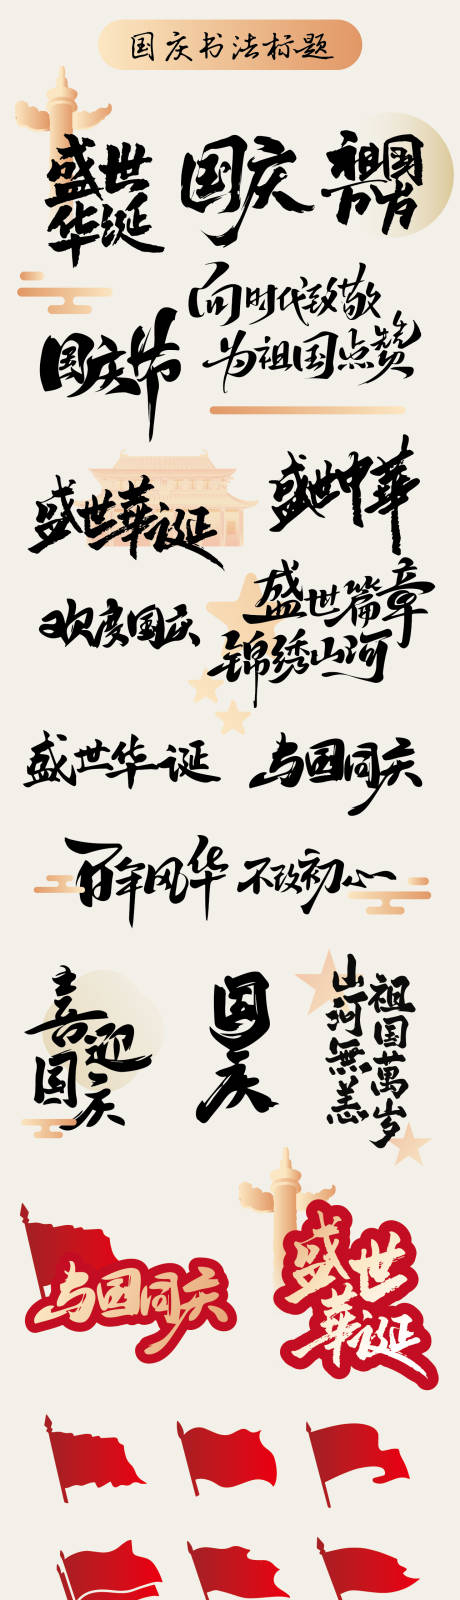 国庆书法标题
盛世
华诞
国庆
祖国
万岁
国庆节
向时代致敬
为祖国点赞
盛世華诞
盛世中華
欢度国庆
盛世篇章
锦绣山河
盛世华诞
与国同庆
百年风华 不改初心
喜迎
国庆
国庆
祖国萬岁
山河無恙
与国同庆
盛世
華诞